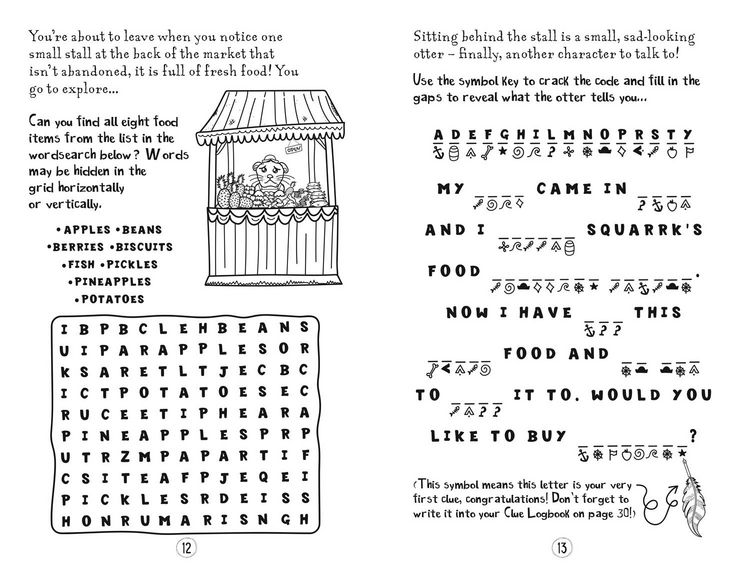 You're about to leave when you notice one
small stall at the back of the market that
isn't abandoned, it is full of fresh food! You
go to explore...
Can you find all eight food
items from the list in the
wordsearch below? Words
may be hidden in the
grid horizontally
or vertically.
OPEN
•APPLES •BEANS
•BERRIES •BISCUITS
•FISH •PICKLES
•PINEAPPLES
•POTATOES
I B P B C L E H B E A N S
U I P A R A P P L E S O R
K S A R E T L T J E C B C
I C T P O T A T O E S E C
R U C E E T I P H E A R A
P I N E A P P L E S P R P
U T R Z M P A P A R T I F
C S I T E A F P J E Q E I
P I C K L E S R D E I S S
H O N R U M A R I S N G H
12
Sitting behind the stall is a small, sad-looking
otter – finally, another character to talk to!
Use the symbol key to crack the code and fill in the
gaps to reveal what the otter tells you...
A D E F G H I L M N O P R S T Y
MY ____ CAME IN ____
AND I ______ SQUARRK'S
FOOD ________ ______.
NOW I HAVE ___ THIS
_____ FOOD AND __ ___
TO ____ IT TO. WOULD YOU
LIKE TO BUY ________?
(This symbol means this letter is your very
first clue, congratulations! Don't forget to
write it into your Clue Logbook on page 30!)
13